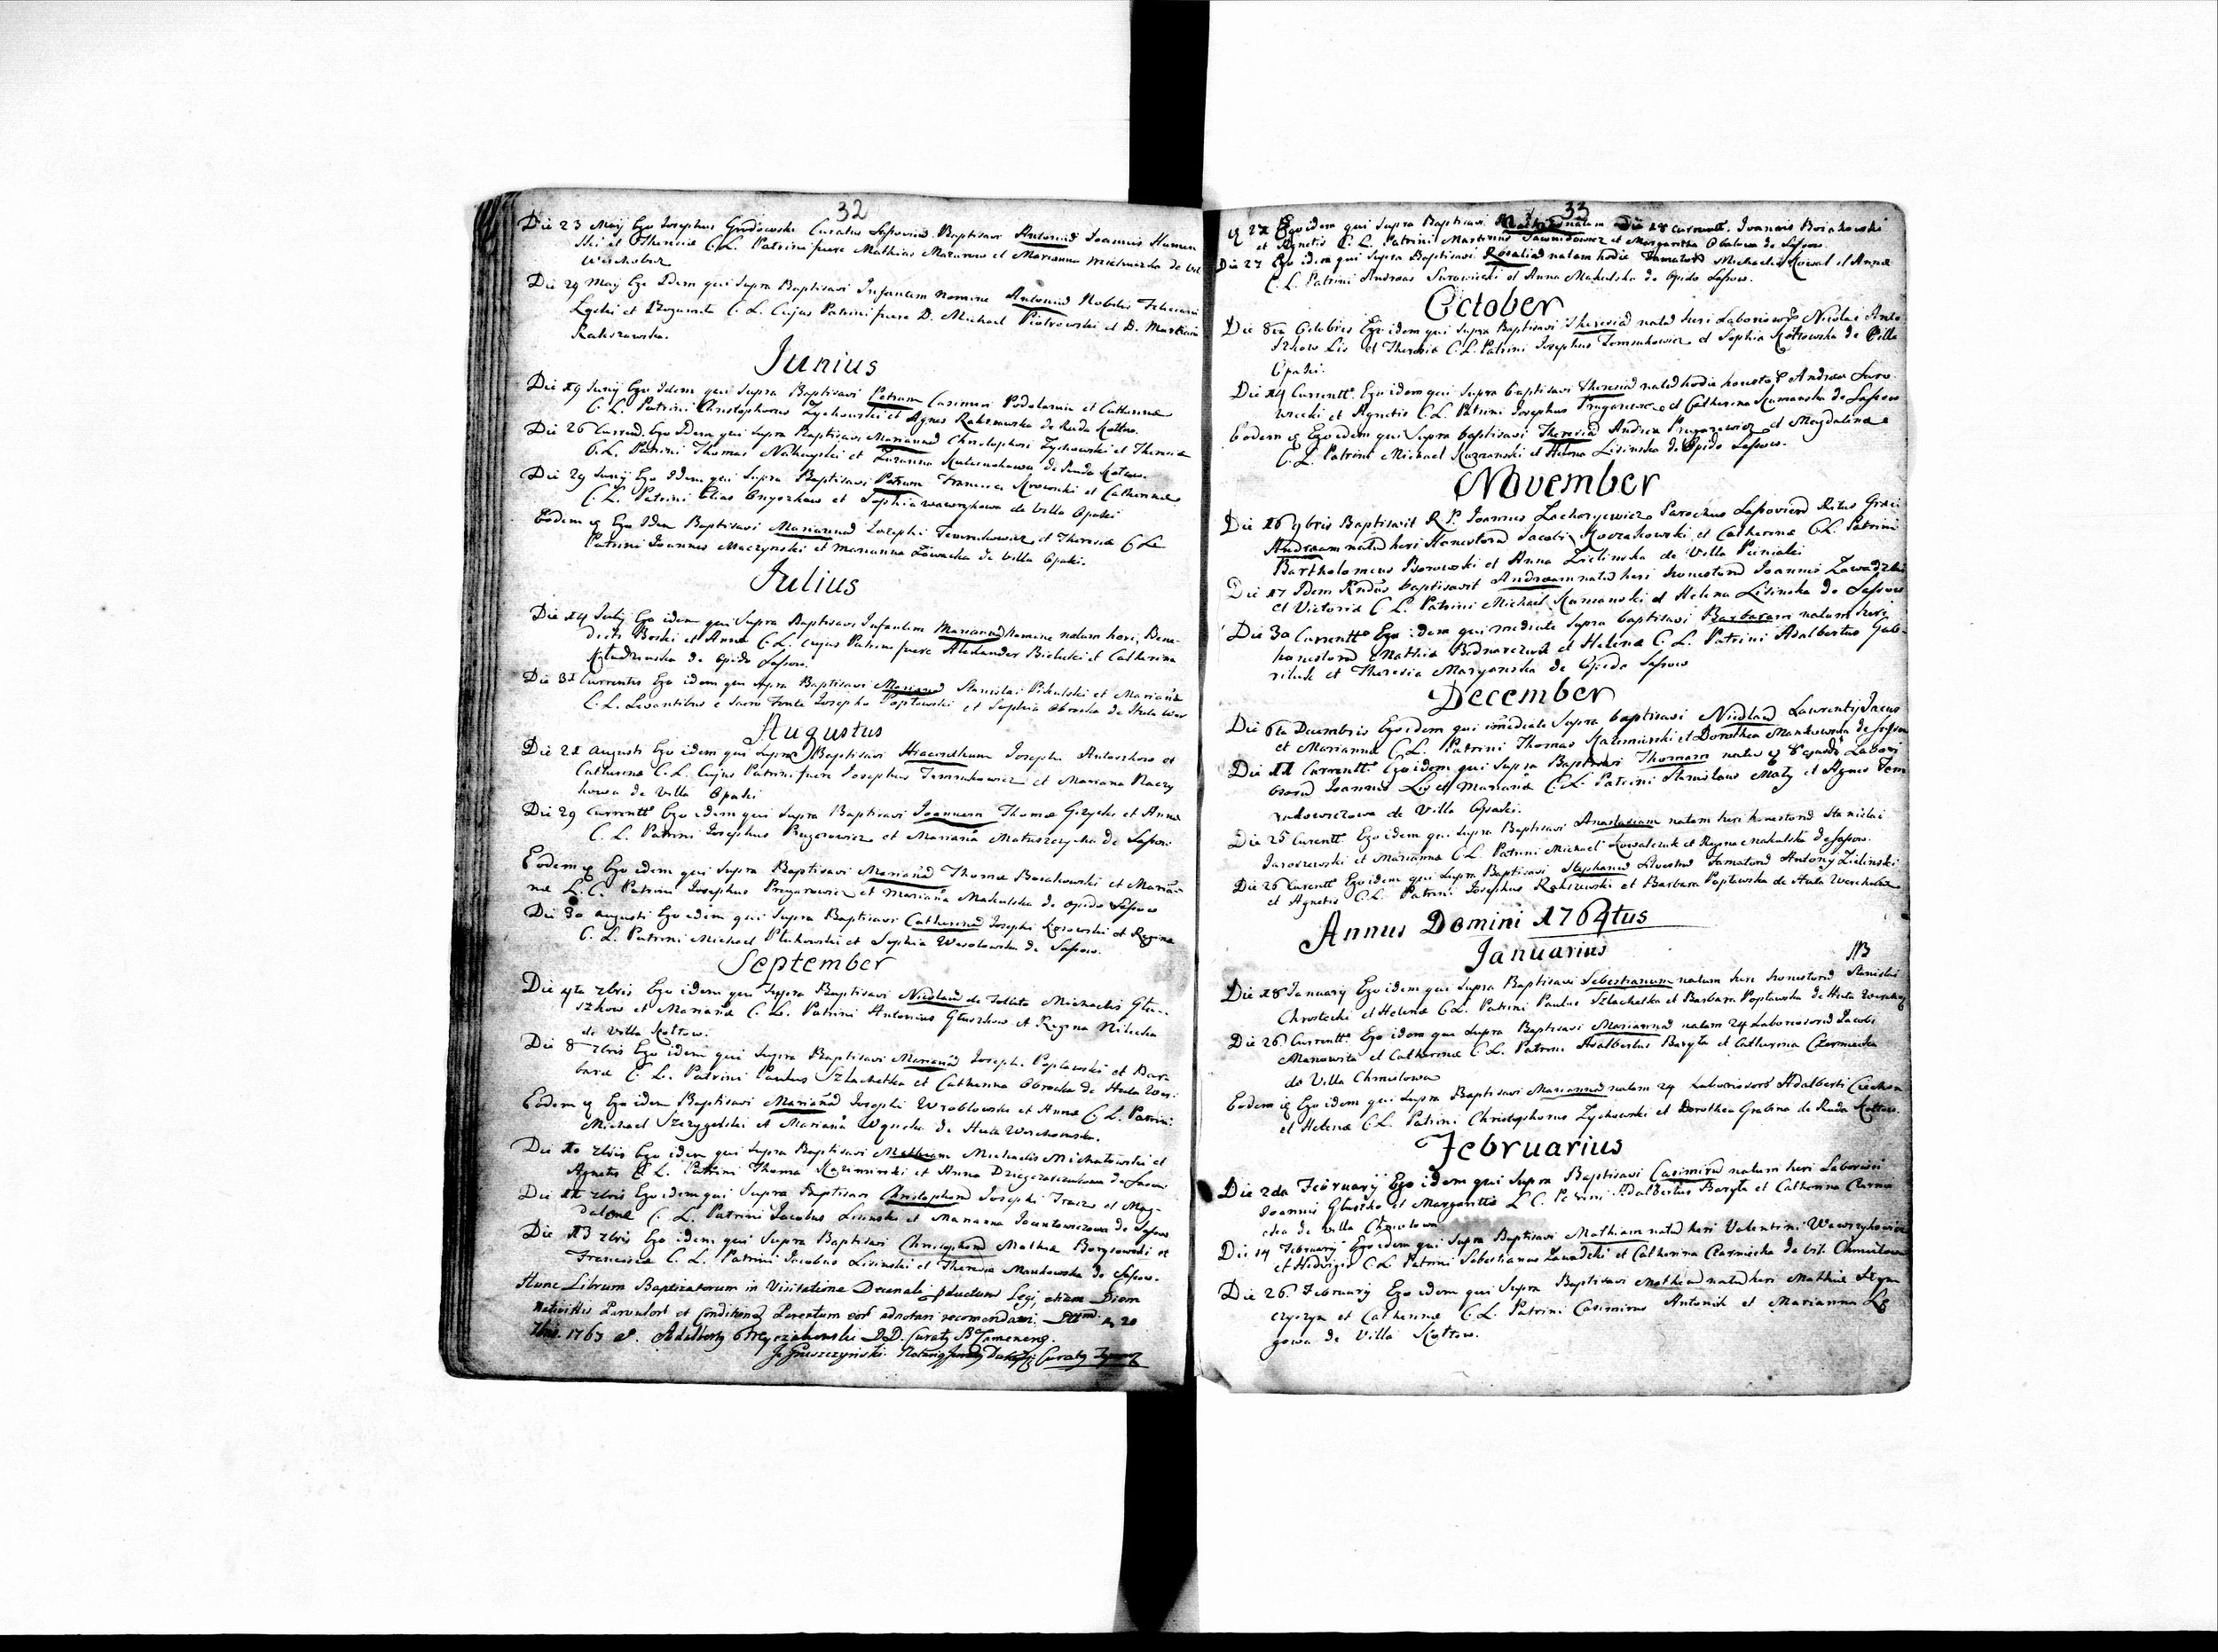 32
Die 23 Maÿ Ego Josephus Grodowski Curatus Sassovien. Baptisavi Antoniũ Joannis Humen
ski et Theresiæ C. L. Patrini fuere Mathias Mazurow et Marianna de
Werchobuz
Die 29 Maÿ Ego Idem qui supra Baptisavi Infantem Nomine Antoniũ Nobilis
et C. L. Cujus Patrini fuere D. Michael Piotrowski et D.
Rakszawska.
Junius
Die 19 Junÿ Ego Idem qui Supra Baptisavi Petrum Casimiri et Catherinæ
C. L. Patrini Christophorus Zychowski et Agnes Rakszawska de Ruda Kołtow.
Die 26 Curren. Ego Idem qui supra Baptisavi Mariannã Christophori Zychowski et Theresiæ
C. L. Patrini Thomas et Zuzanna de Ruda Kołtow.
Die 29 Junÿ Ego Idem qui Supra Baptisavi Petrum Francisci et Catherinæ
C. L. Patrini Elias et Sophia Wawrzykowa de Villa Opaki
Eodem q Ego Idem Baptisavi Mariannã Josephi Temrukowicz et Theresiæ C L
Patrini Joannes Maczynski et Marianna Zawacka de Villa Opaki.
Julius
Die 14 Julÿ Ego idem qui Supra Baptisavi Infantem Mariannã Nomine natam heri, Bene-
dicti Boski et Annæ C. L. cujus Patrini fuere Alexander Bielecki et Catherina
de Opido Sassow.
Die 31 Currentis Ego idem qui supra Baptisavi Mariannã Stanislai Pikulski et Mariãnæ
C. L. Levantibus e Sacro Fonte Josepho Popławski et Sophia Obrocka de Huta Wer
Augustus
Die 21 Augusti Ego idem qui supra Baptisavi Hiacinthum Josephi Antoszkow et
Catherinæ C. L. Cujus Patrini fuere Josephus Temrukowicz et Mariana Naczy
kowa de Villa Opaki
Die 29 Currentis Ego idem qui supra Baptisavi Joannem Thomæ Gizycki et Annæ
C. L. Patrini Josephus Prugarowicz et Mariana Matuszczycha de Sassow.
Eodem q Ego idem qui supra Baptisavi Mariãnã Thomæ Boiakowski et Mariãn-
næ L. C. Patrini Josephus Prugarowicz et Mariãna Makulska de Opido Sassow
Die 30 Augusti Ego idem qui Supra Baptisavi Catherinã Josephi Kosowski et Reginæ
C. L. Patrini Michael Plukowski et Sophia Wesołowska de Sassow.
September
Die 4ta 7bris Ego idem qui supra Baptisavi Nicolaũ de Michaelis Głu-
szkow et Mariãnæ C. L. Patrini Antonius Głuszkow et Regina
de Villa Kołtow.
Die 8 7bris Ego idem qui supra Baptisavi Mariãnã Josephi Popławski et Bar-
baræ C. L. Patrini Paulus Szlachetka et Catherina Obrocka de Huta Wer.
Eodem q Ego idem Baptisavi Mariãnã Josephi Wroblowski et Annæ C. L. Patrini
Michael et Mariãna de Huta Werchobuska.
Die 10 7bris Ego idem qui supra Baptisavi Mathæum Michaelis Michałowski et
Agnetis C. L. Patrini Thoma Kazimirski et Anna de Sassow
Die 11 7bris Ego idem qui Supra Baptisavi Christophorũ Josephi et Mag-
dalenæ C. L. Patrini Jacobus Lisinski et Marianna de Sassow
Die 13 7bris Ego idem qui supra Baptisavi Christophorũ Mathiæ Borysowski et
Franciscæ C. L. Patrini Jacobus Lisinski et Theresia Mankowska de Sassow.
Hunc Librum Baptizatorum in Visitatione Decanali Legi, etiam Diem
et Parentum adnotari recomendavi. 20
7bris 1763 A.

33
q 22 Ego idem qui Supra Baptisavi natum Die 18 Currentt. Joannis Boiakowski
et Agnetis C. L. Patrini Martinus et Margaritha de Sassow.
Die 27 Ego idem qui supra Baptisavi Rosaliã natam hodie Famatorũ Michaelis Kowal et Annæ
C. L. Patrini Andreas Surowiecki et Anna Makulska de Opido Sassow.
October
Die 8va Octobris Ego idem qui Supra Baptisavi Theresiã natã heri Nicolai
Lis et Theresiæ C. L. Patrini Josephus Temrukowicz et Sophia Kołtowska de Villa
Opaki.
Die 14 Currentt. Ego idem qui supra baptisavi Theresiã natã hodie Andreæ Suro-
wiecki et Agnetis C. L. Patrini Josephus Prugarowicz et Catherina Kumanska de Sassow
Eodem q Ego idem qui Supra baptisavi Theresiã Andreæ Prugarowicz et Magdalenæ
C. L. Patrini Michael et Helena Lisinska de Opido Sassow.
November
Die 16 9bris Baptisavit R. P. Joannes Zacharyewicz Parochus Sassovien Ritus Græci
Andream natũ heri Honestorũ Jacobi Koczakowski et Catherinæ C. L. Patrini
Bartholomeus Borowski et Anna Zielinska de Villa Pieniaki
Die 17 Idem Rndus baptisavit Andream natũ heri honestorũ Joannis Zawadzki
et Victoriæ C. L. Patrini Michael Kumanski et Helena Lisinska de Sassow
Die 30 Currentt. Ego idem qui immediate Supra baptisavi Barbaram natam heri
honestorũ Mathiæ Bednarczuk et Helenæ C. L. Patrini Adalbertus Gab-
riluk et Theresia Maryanska de Opido Sassow
December
Die 6ta Decembris Ego idem qui imediate Supra baptisavi Nicolaũ Laurentÿ
et Mariannæ C. L. Patrini Thomas Kazimirski et Dorothea Mankowska de Sassow
Die 11 Currentt. Ego idem qui Supra Baptisavi Thomam natũ q 8 Labori
osorũ Joannis Lis et Mariãnæ C. L. Patrini Stanislaus Mały et Agnes Tem
rukowiczowa de Villa Opaki.
Die 25 Curentt. Ego idem qui supra Baptisavi Anastasiam natam heri honestorũ Stanislai
Jaroszewski et Mariannæ C. L. Patrini Michael Kowalczuk et Regina Makulska de Sassow.
Die 26 Curentt. Ego idem qui Supra Baptisavi Stephanũ Famatorũ Antonÿ Zielinski
et Agnetis C. L. Patrini Josephus Rakszewski et Barbara Popławska de Huta Werchobuz
Annus Domini 1764tus
Januarius
Die 18 Januarÿ Ego idem qui supra Baptisavi Sebestianum natum heri honestorũ Stanislai
Chrostecki et Helenæ C. L. Patrini Paulus Szlachetka et Barbara Popławska de Huta
Die 26 Currentt. Ego idem qui supra Baptisavi Mariannã natam 24 Laboriosorũ Jacobi
et Catherinæ C. L. Patrini Adalbertus Baryła et Catherina Czarniecka
de Villa Chmielowa
Eodem q Ego idem qui Supra Baptisavi Mariannã natam 24 Laboriosorũ Adalberti
et Helenæ C. L. Patrini Christophorus Zychowski et Dorothea Grabina de Ruda Kołtow.
Februarius
Die 2da Februarÿ Ego idem qui supra Baptisavi Casimirũ natum heri
Joannis Głuszko et Margarittæ L C. Patrini Adalbertus Baryła et Catherina Czarnie
cka de Villa Chmielowa
Die 14 Februarÿ Ego idem qui supra Baptisavi Mathiam natũ heri Valentini
et Hedvigis C. L. Patrini Sebestianus Zawadzki et Catherina Czarniecka de Vil. Chmielowa
Die 26 Februarÿ Ego idem qui Supra Baptisavi natũ heri Mathiæ
et Catherinæ C. L. Patrini Casimirus Antonik et Marianna
gowa de Villa Kołtow.